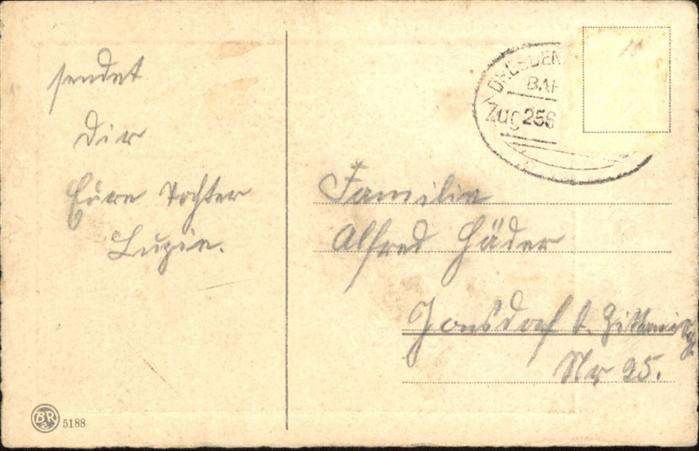 sendet
Dir
Eure Tochter
Luzie.
DRESDEN
BAH
Zug 256
Familie
Alfred Häder
Jonsdorf b. Zittau i/S
Nr 25.
BR
5188